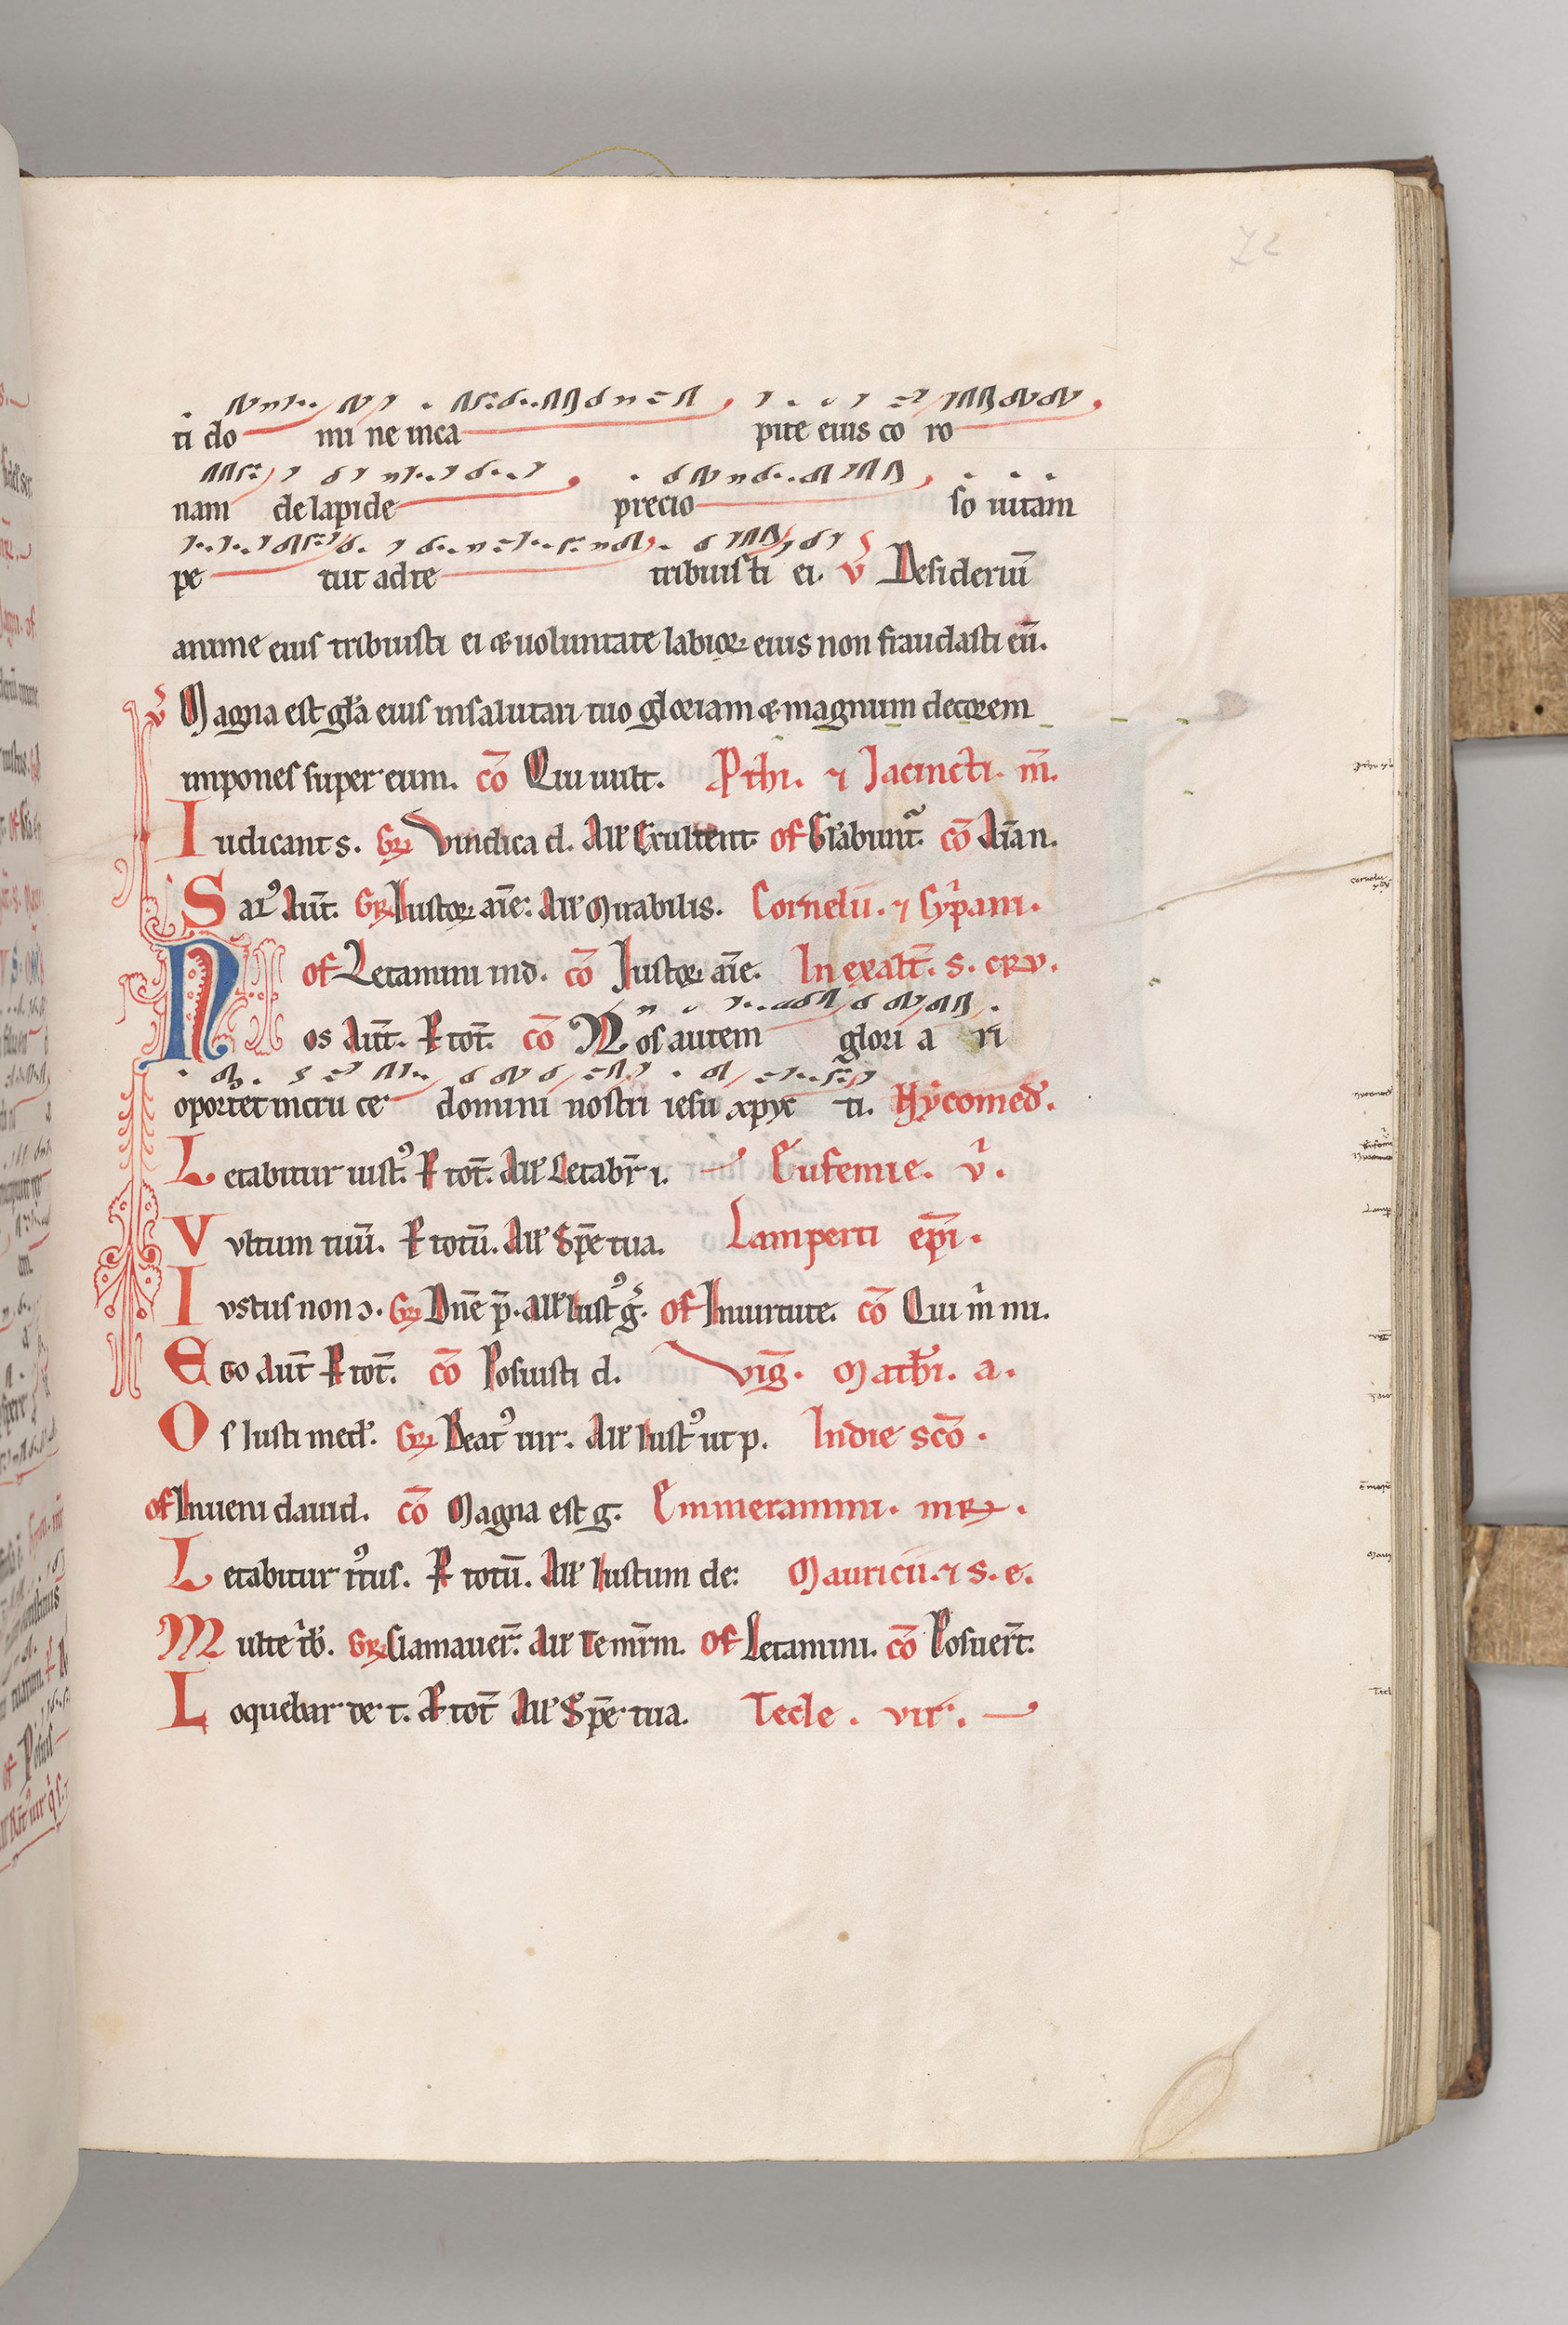 72
ti do mi ne inca pite eius co ro
nam de lapide precio so uitam
pe tiit ad te tribuisti ei. v̄ Desideriū
anime eius tribuisti ei & uoluntate labioꝝ eius non fraudasti eū.
v̄ Magna est gła eius insalutari tuo gloriam & magnum decorem
impones super eum. cō Qui uult. Pthi. ⁊ Jacincti. m̄.
Iudicant s. Gꝝ Vindica d. All̄ Exultent. of Gl̄abunt᷑. cō Aīa n.
Sap̄ Aūt. Gꝝ Iustoꝝ aīe: All̄ Mirabilis. Cornelii. ⁊ Cyp̄ani.
of Letamini in d. cō Iustoꝝ aīe. In exalt̄. s. crv.
Nos Aūt. R tot̄. cō Nos autem glori a ri
oportet incru ce domini nostri iesu xpyc ti. Nycomed̄.
Letabitur iustꝰ. R tot̄. All̄ Letabr̄ i. Eufemie. v̄.
Vvltum tuū. R totū. All̄ Spē tua. Lamperti ep̄i.
Ivstus non ɔ. Gꝝ Dn̄e p̄. All̄ Iustꝰ ḡ. of Inuirtute. cō Qui m̄ mi.
Ego aūt R tot̄. cō Posuisti d. Viḡ. Math̄i. a.
Os Iusti med̄. Gꝝ Beatꝰ uir. All̄ Iustꝰ ut p. Indie scō.
of Inueni dauid. cō Magna est g. Emmerammi. mꝝ.
Letabitur R totū. All̄ Iustum de: Mauricii. ⁊ s. e.
Multe t̄b. Gꝝ Clamauer̄. All̄ Te mr̄m. of Letamini. cō Posuer̄t.
Loquebar de t. R tot̄ All̄ Spē tua. Tecle. vir̄.